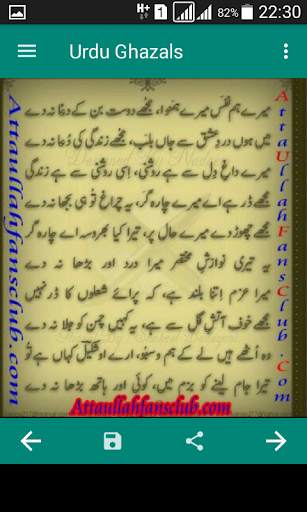 H+ 1 82% 22:30
Urdu Ghazals
میرے ہم نفس میرے ہمنوا، مجھے دوست بن کے دغا نہ دے
میں ہوں دردِ عشق سے جاں بلب، مجھے زندگی کی دُعا نہ دے
میرے داغِ دل سے ہے روشنی، اسی روشنی سے ہے زندگی
مجھے ڈر ہے اے میرے چارہ گر، یہ چراغ تو ہی بجھا نہ دے
مجھے چھوڑ دے میرے حال پر، تیرا کیا بھروسہ اے چارہ گر
یہ تیری نوازشِ مختصر میرا درد اور بڑھا نہ دے
میرا عزم اتنا بلند ہے، کہ پرائے شعلوں کا ڈر نہیں
مجھے خوف آتشِ گل سے ہے، کہیں چمن کو جلا نہ دے
وہ اٹھے ہیں لے کے خم و سبو، ارے او شکیل کہاں ہے تو
تیرا جام لینے کو بزم میں، کوئی اور ہاتھ بڑھا نہ دے
Attaullahfansclub.com
AttaUllahFansClub.Com
Attaullahfansclub.com